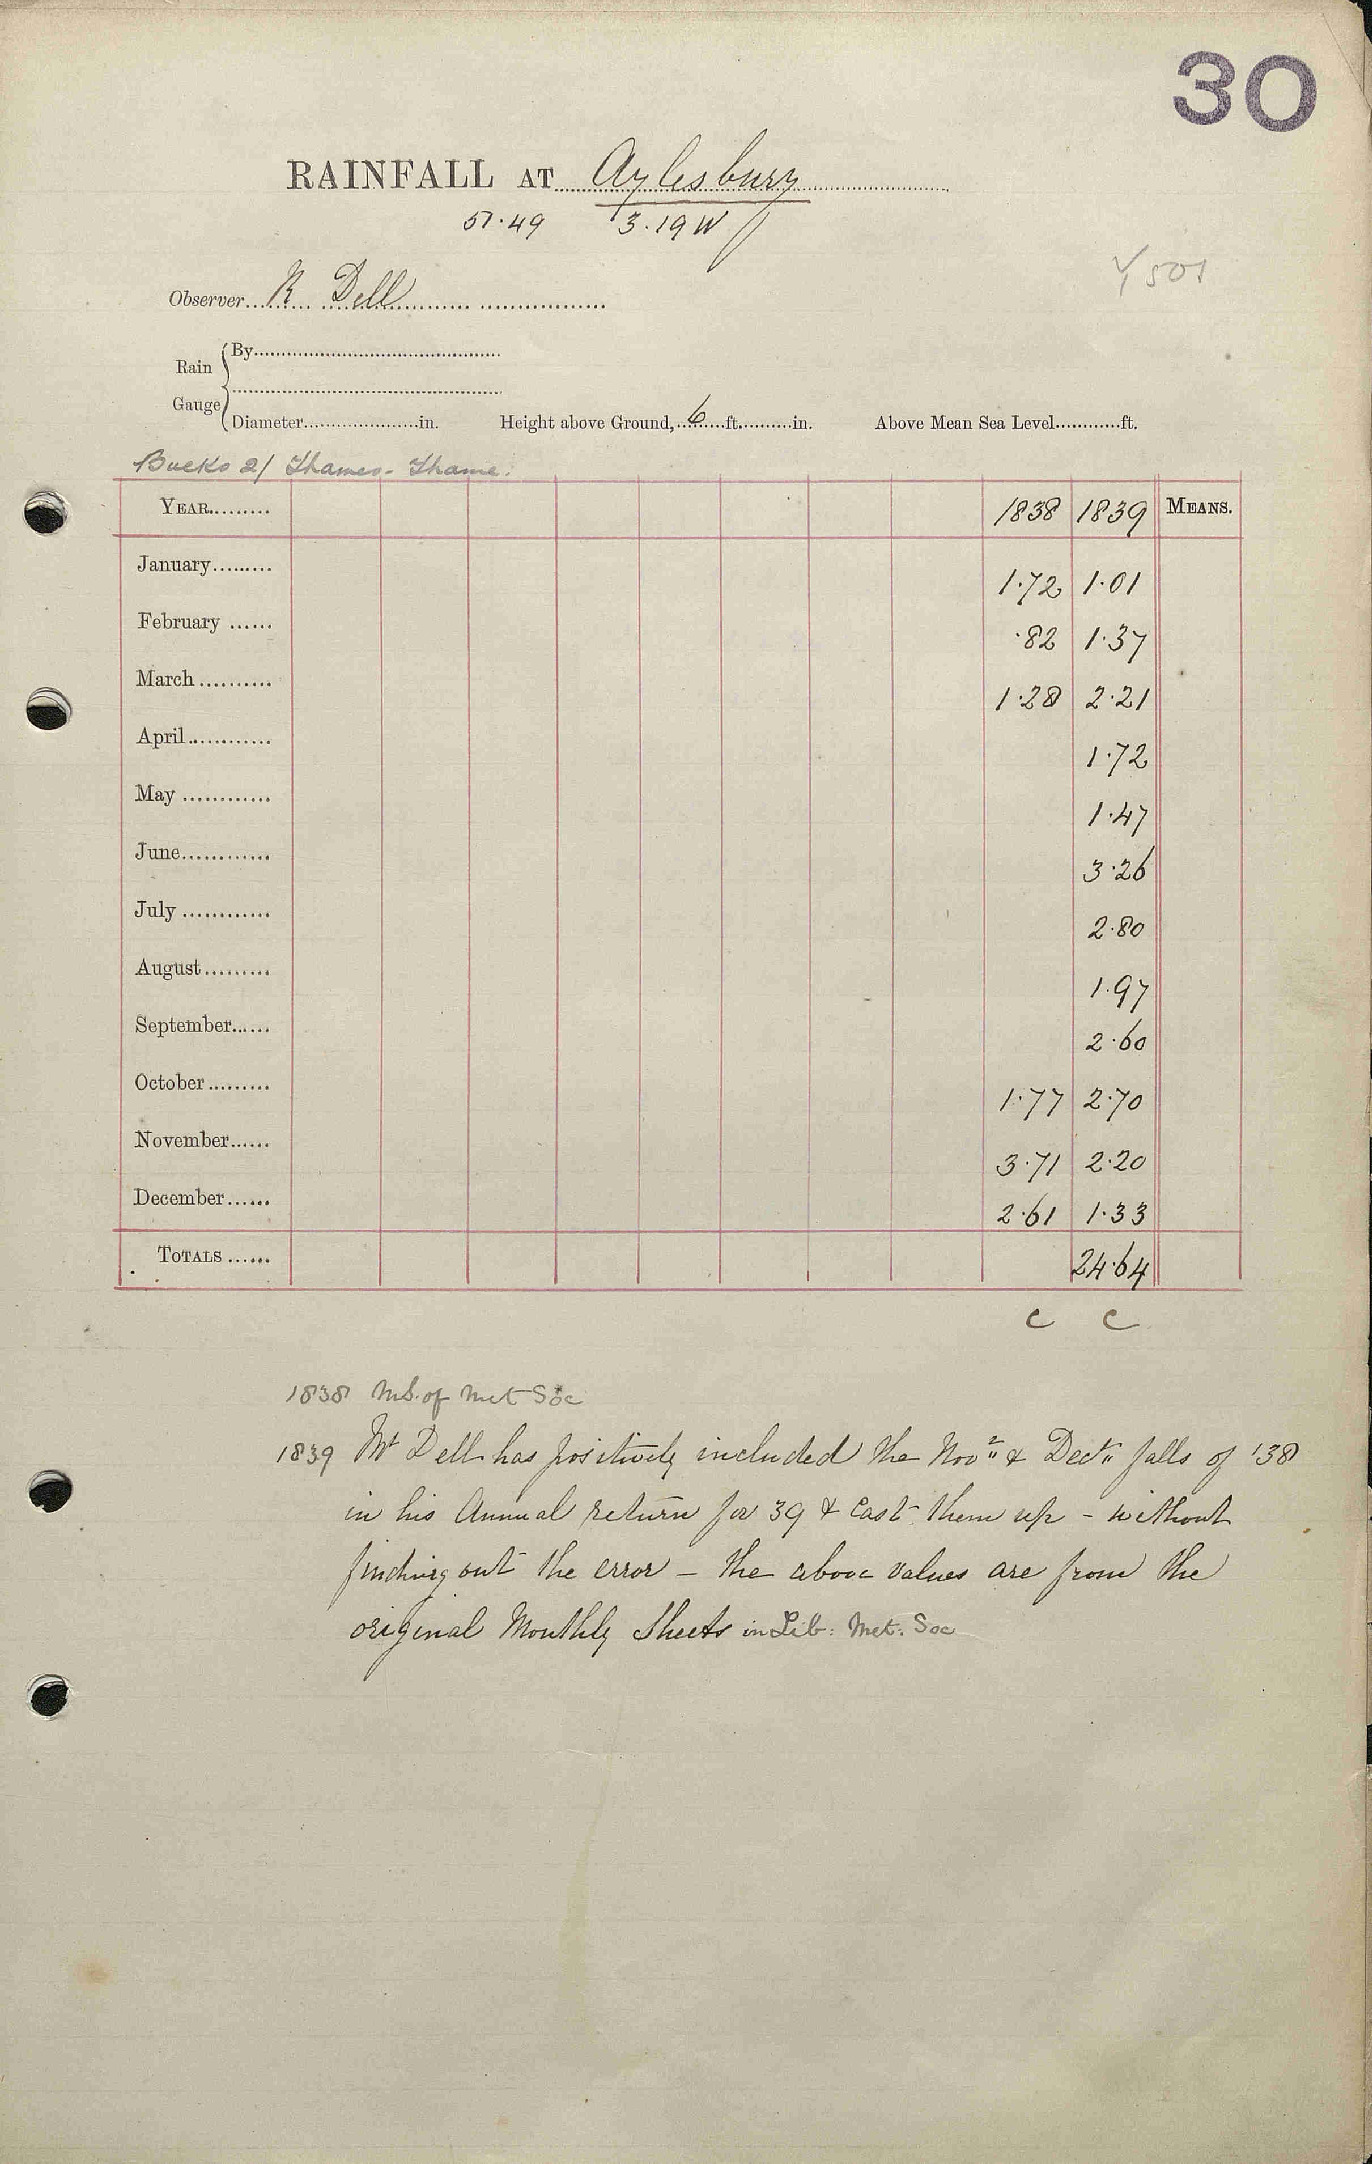 30
RAINFALL AT Aylesbury
51.49 3.19W
Observer R Dell
Rain Gauge
By
Diameter in. Height above Ground, 6 ft. in. Above Mean Sea Level ft.
Bucks 2/ Thames - Thame.
YEAR 1838 1839 MEANS.
January 1.72 1.01
February .82 1.37
March 1.28 2.21
April 1.72
May 1.47
June 3.26
July 2.80
August 1.97
September 2.60
October 1.77 2.70
November 3.71 2.20
December 2.61 1.33
TOTALS 24.64
C C
1838 MS. of Met Soc
1839 Mr Dell has positively included the Nov & Dec falls of '38
in his Annual return for 39 & cast them up - without
finding out the error - the above values are from the
original Monthly Sheets in Lib: Met. Soc